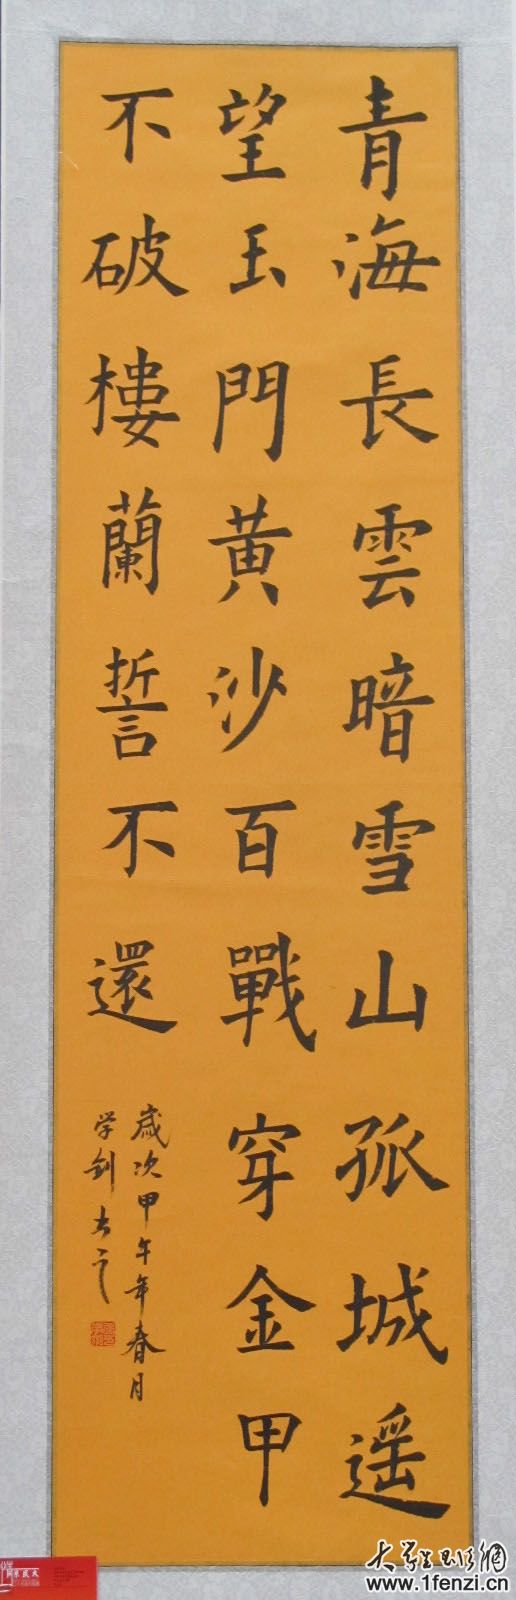 青海長雲暗雪山孤城遥
望玉門黄沙百戰穿金甲
不破樓蘭誓不還
歲次甲午年春月
学剑书
大学生书法網
www.1fenzi.cn